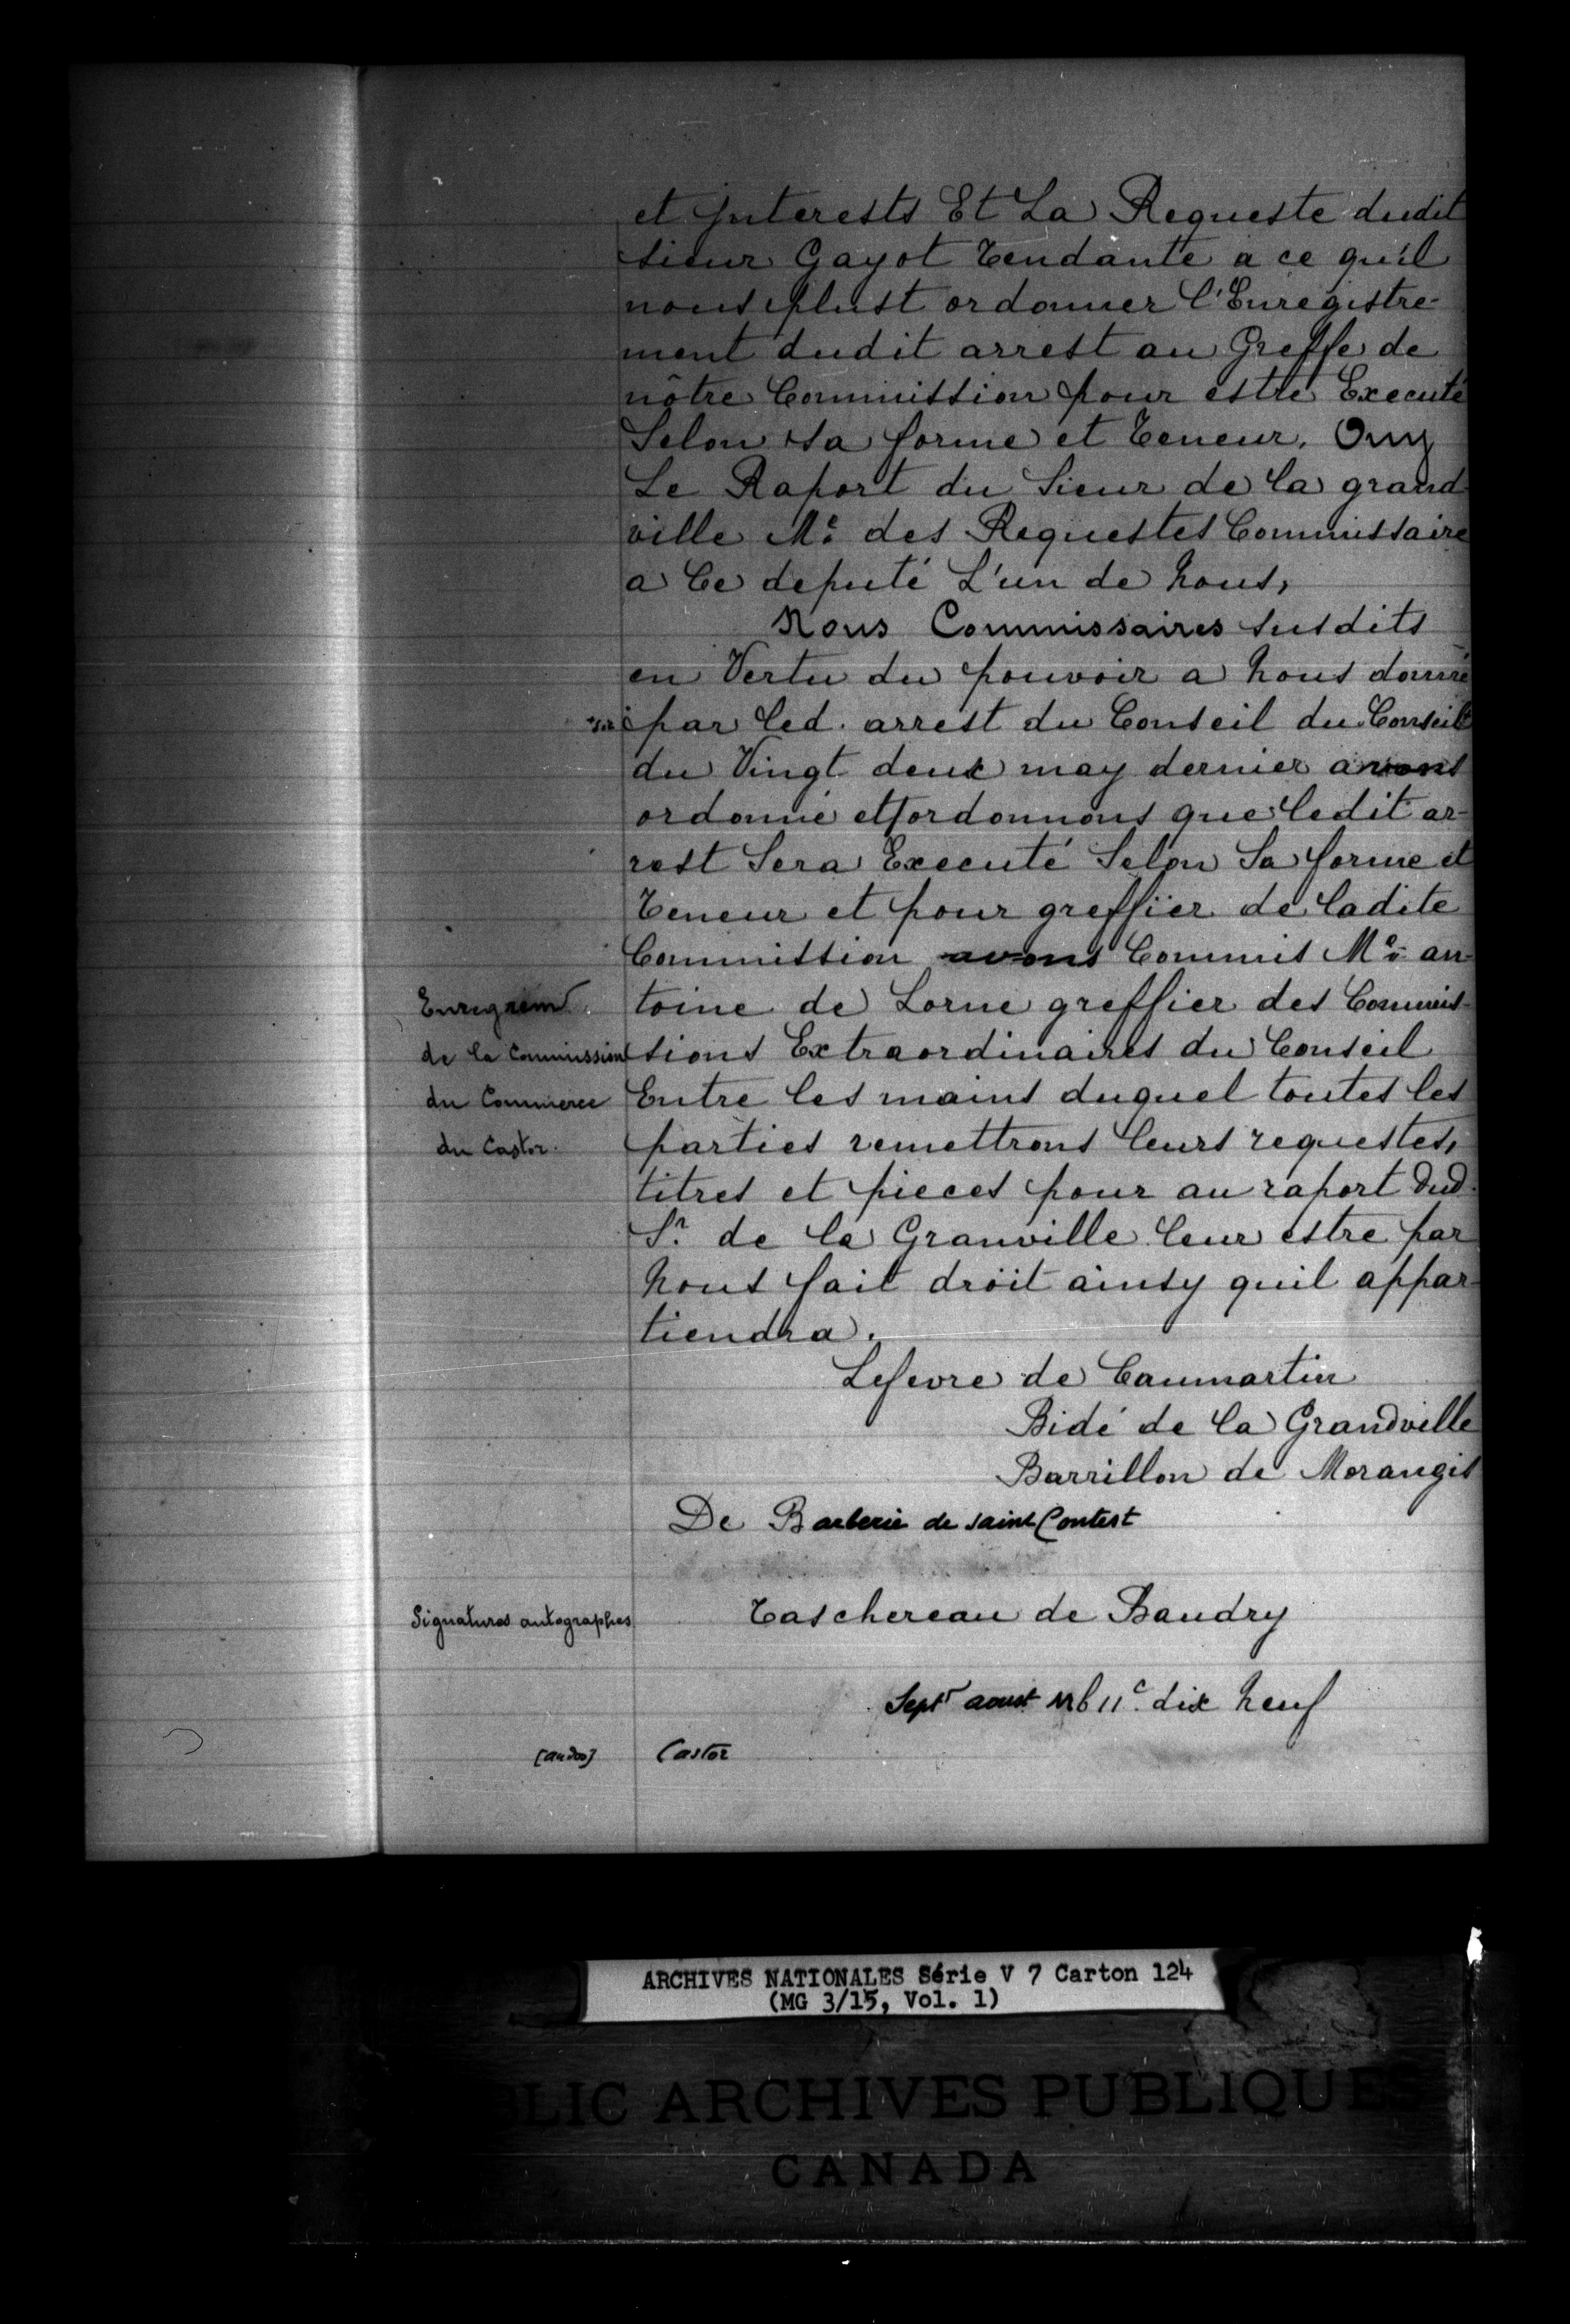 et Interests Et La Requeste dudit
sieur Gayot Tendante a ce qu'il
nous plust ordonner l'Enregistre-
ment dudit arrest au Greffe de
nôtre Commission pour estre Executé
Selon sa forme et Teneur. Ouy
Le Raport du Sieur de la grand-
ville Me. des Requestes Commissaire
a Ce deputé L'un de Nous,
Nous Commissaires susdits
en Vertu du pouvoir a Nous donné
par led. arrest du Conseil du Conseil
du Vingt deux may dernier avons
ordonné et ordonnons que ledit ar-
rest Sera Executé Selon Sa forme et
Teneur et pour greffier de ladite
Commission avons Commis Me. an-
Enregrem. toine de Lorne greffier des Commis-
de la Commission sions Extraordinaires du Conseil
du Commerce Entre les mains duquel toutes les
du Castor. parties remettrons leurs requestes,
titres et pieces pour au raport dud.
Sr. de la Granville leur estre par
Nous fait droit ainsy quil appar-
tiendra.
Lefevre de Caumartin
Bidé de la Grandville
Barrillon de Morangis
De Barberie de Saint Contest
Signatures autographes Taschereau de Baudry
Sept aoust M6 11c. dix Neuf
[au dos] Castor
ARCHIVES NATIONALES Série V 7 Carton 124
(MG 3/15, Vol. 1)
BLIC ARCHIVES PUBLIQUES
CANADA